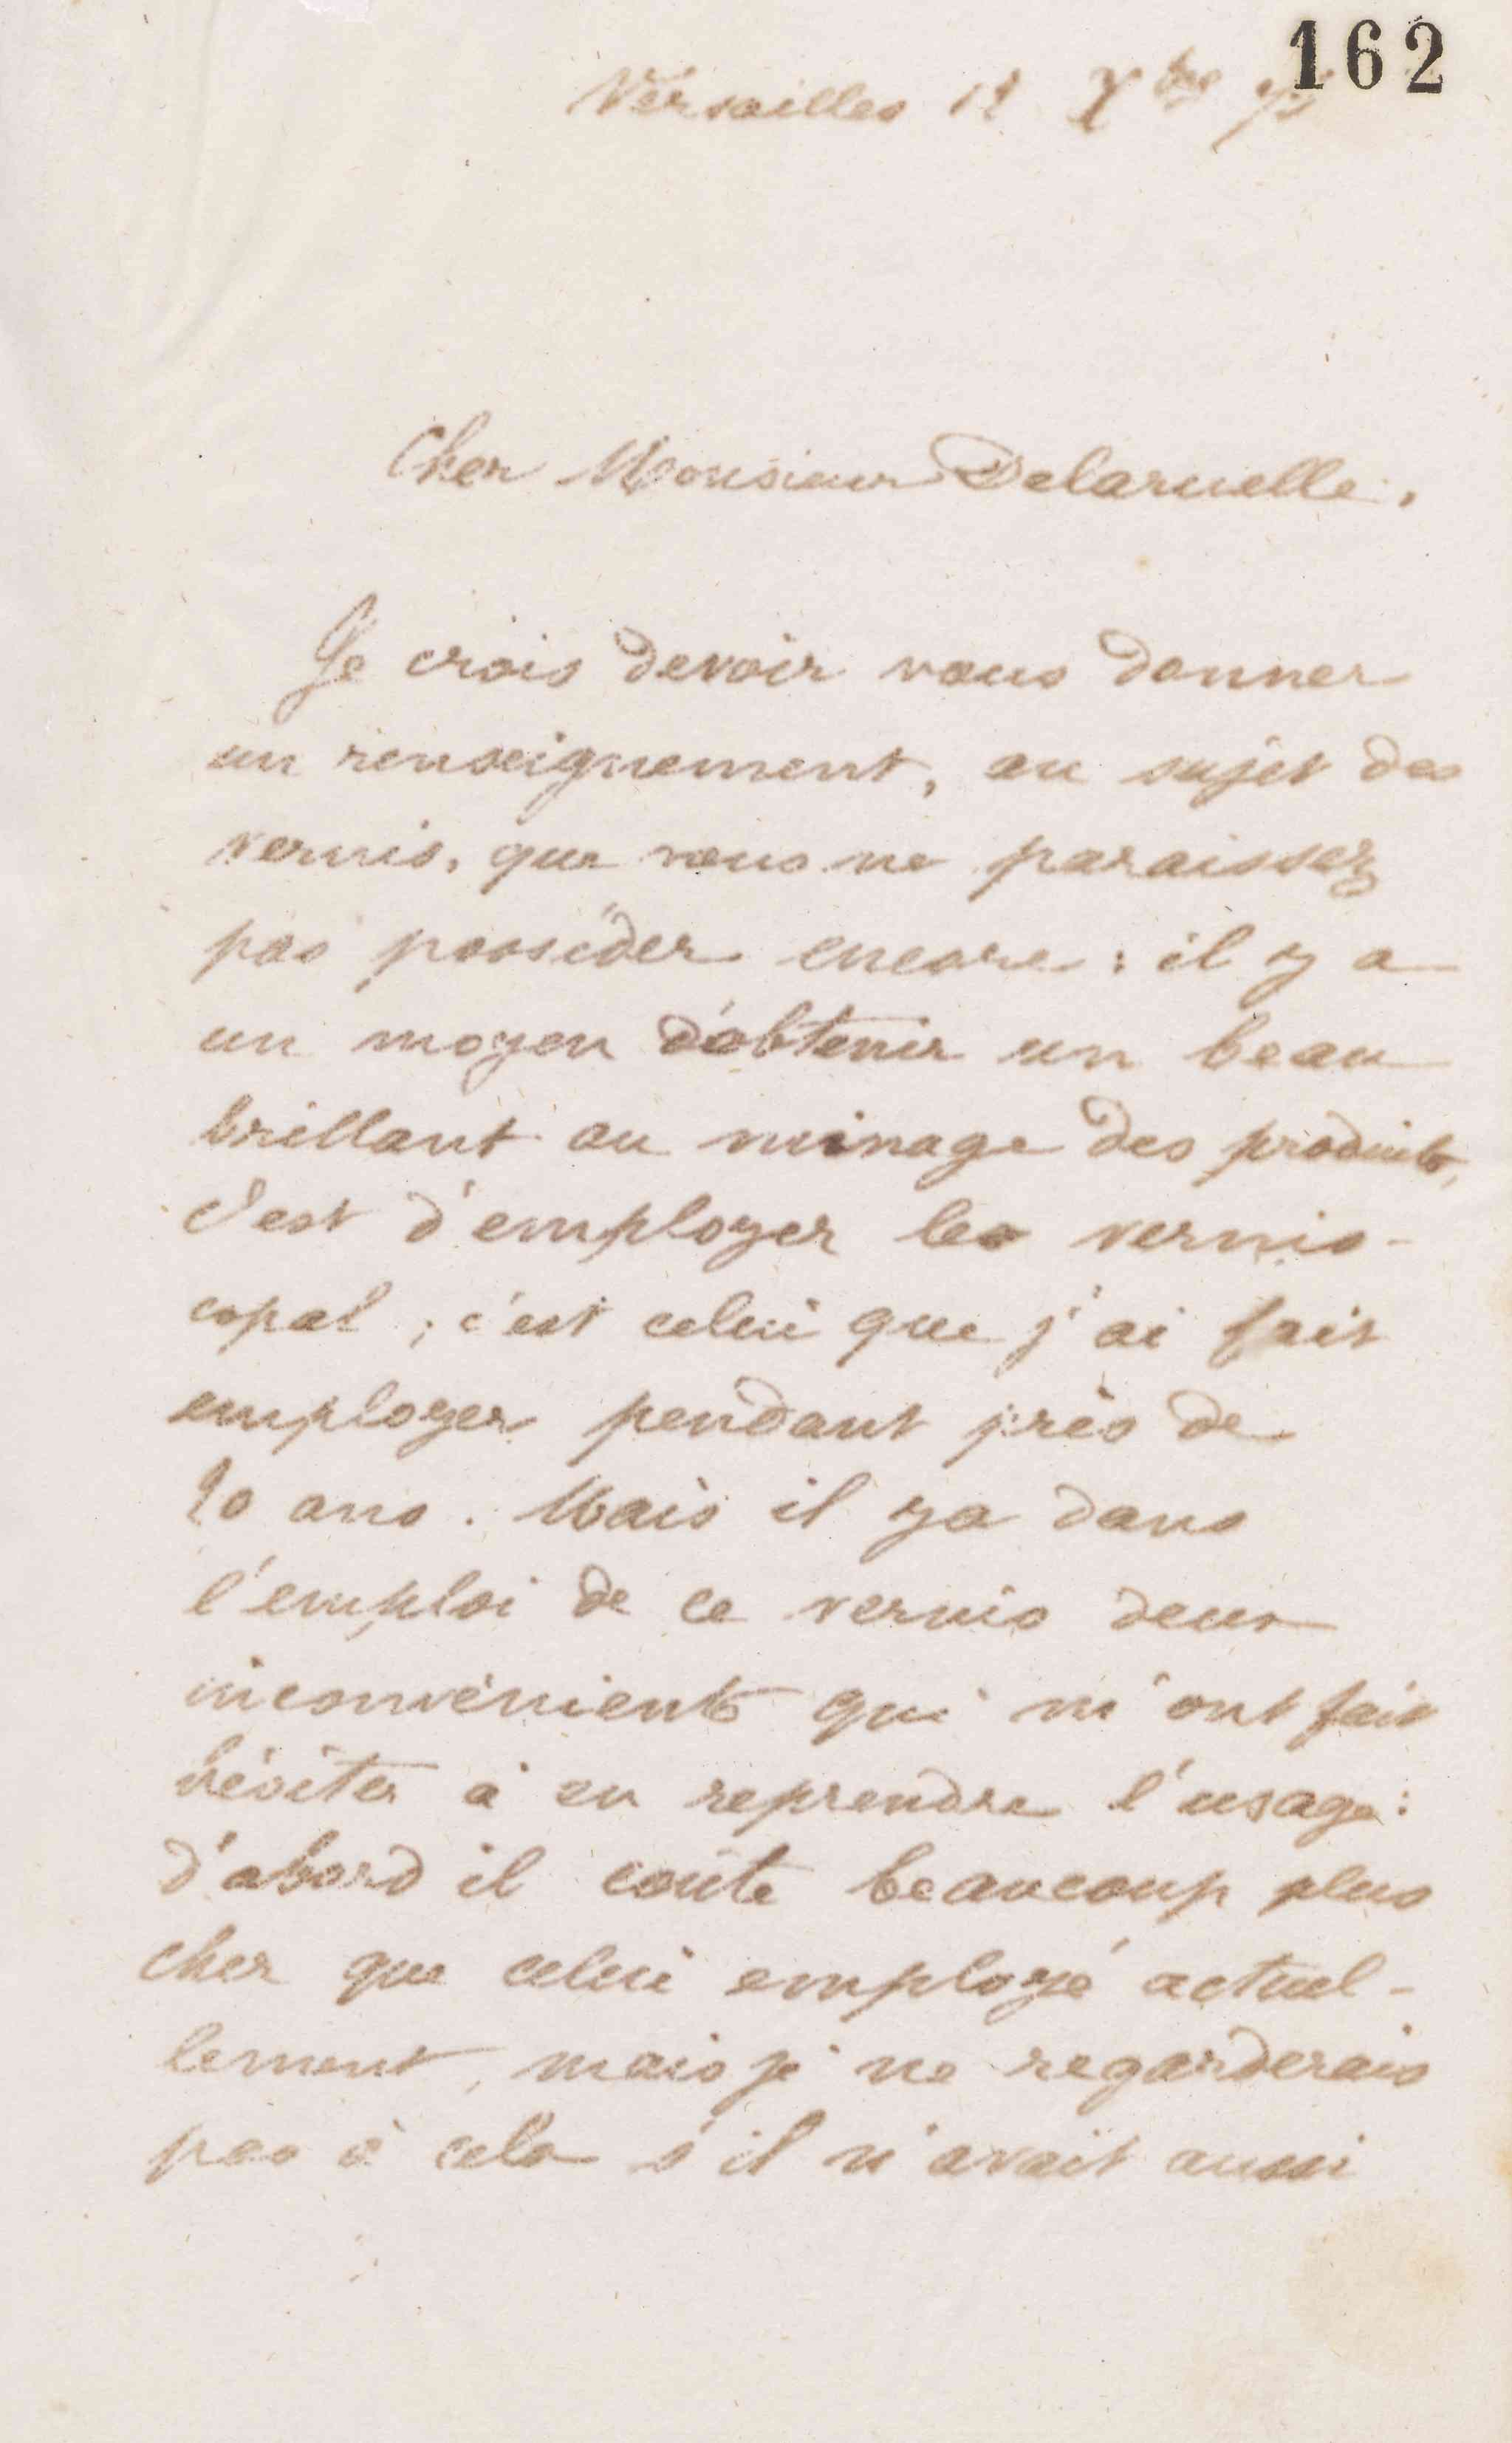 162
Versailles 12 Xbre
Cher Monsieur Delaruelle,
Je crois devoir vous donner
un renseignement, au sujet des
vernis, que vous ne paraissez
pas posséder encore : il y a
un moyen d'obtenir un beau
brillant au minage des produits,
c'est d'employer les vernis-
copal ; c'est celui que j'ai fait
employer pendant près de
20 ans. Mais il y a dans
l'emploi de ce vernis deux
inconvénients qui m'ont fait
hésiter à en reprendre l'usage :
d'abord il coûte beaucoup plus
cher que celui employé actuel-
lement, mais je ne regarderais
pas à cela s'il n'avait aussi